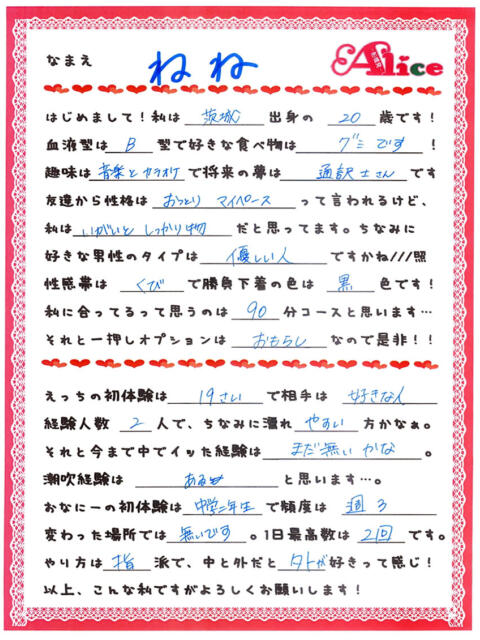 なまえ ねね Alice
はじめまして！私は 茨城 出身の 20 歳です！
血液型は B 型で好きな食べ物は グミです ！
趣味は 音楽とカラオケ で将来の夢は 通訳士さん です
友達から性格は おっとり マイペース って言われるけど、
私は いがいと しっかり物 だと思ってます。ちなみに
好きな男性のタイプは 優しい人 ですかね///照
性感帯は くび で勝負下着の色は 黒 色です！
私に合ってるって思うのは 90 分コースと思います…
それと一押しオプションは おもらし なので是非！！
えっちの初体験は 19さい で相手は 好きな人
経験人数 2 人で、ちなみに濡れ やすい 方かなぁ。
それと今まで中でイッた経験は まだ無いかな 。
潮吹経験は ある と思います…。
変わった場所では 無いです 。1日最高数は 2回 です。
やり方は 指 派で、中と外だと 外が 好きって感じ！
以上、こんな私ですがよろしくお願いします！